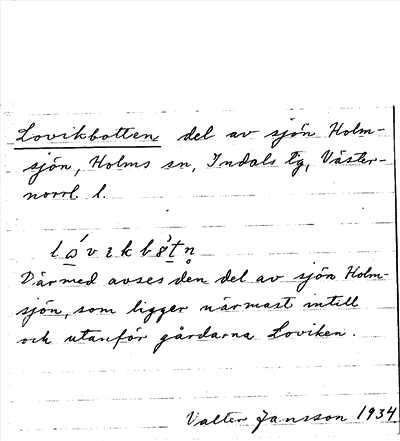 Lovikbotten del av sjön Holm-
sjön, Holms sn, Indals tg, Väster-
norrl. l.
Därmed avses den del av sjön Holm-
sjön, som ligger närmast intill
och utanför gårdarna Loviken.
Valter Jansson 1934